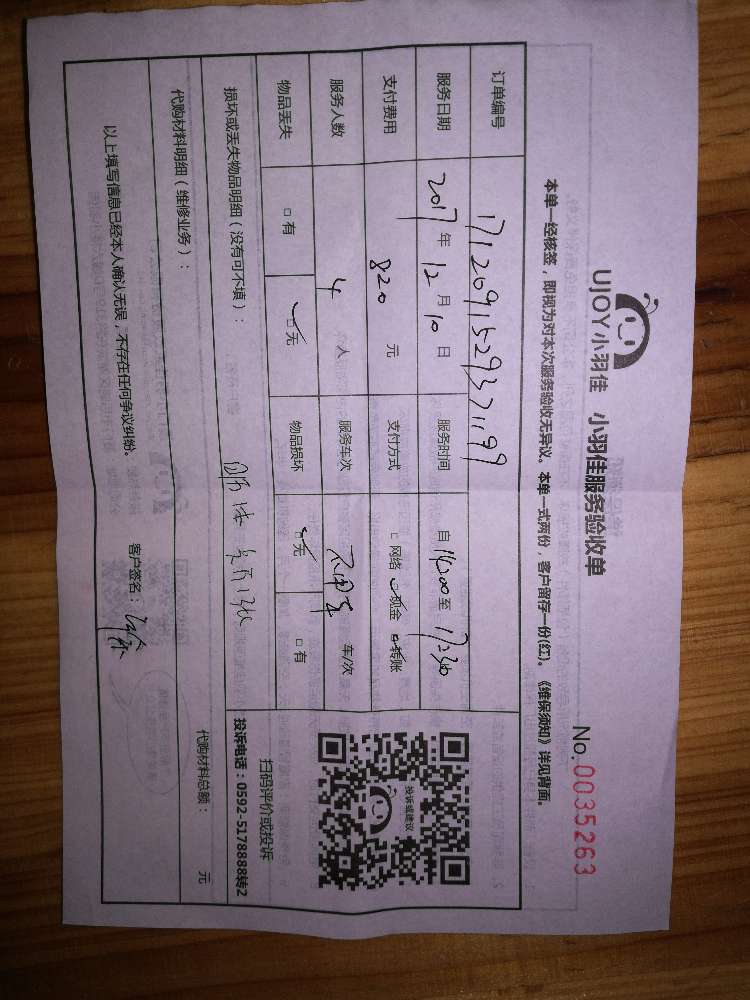 UJOY小羽佳 小羽佳服务验收单
No.0035263
本单一经核签，即视为对本次服务验收无异议。本单一式两份，客户留存一份(红)。《维保须知》详见背面。
订单编号 171209152937199
服务日期 2017年12月10日 服务时间 自14:00至17:30
支付费用 820元 支付方式 □网络 □现金 □转账
服务人数 4人 服务车次 车/次
物品丢失 □有 □无 物品损坏 □无 □有
损坏或丢失物品明细（没有可不填）：
代购材料明细（维修业务）：
代购材料总额： 元
以上填写信息已经本人确认无误，不存在任何争议纠纷。 客户签名：
投诉或建议
扫码评价或投诉
投诉电话：0592-5178888转2